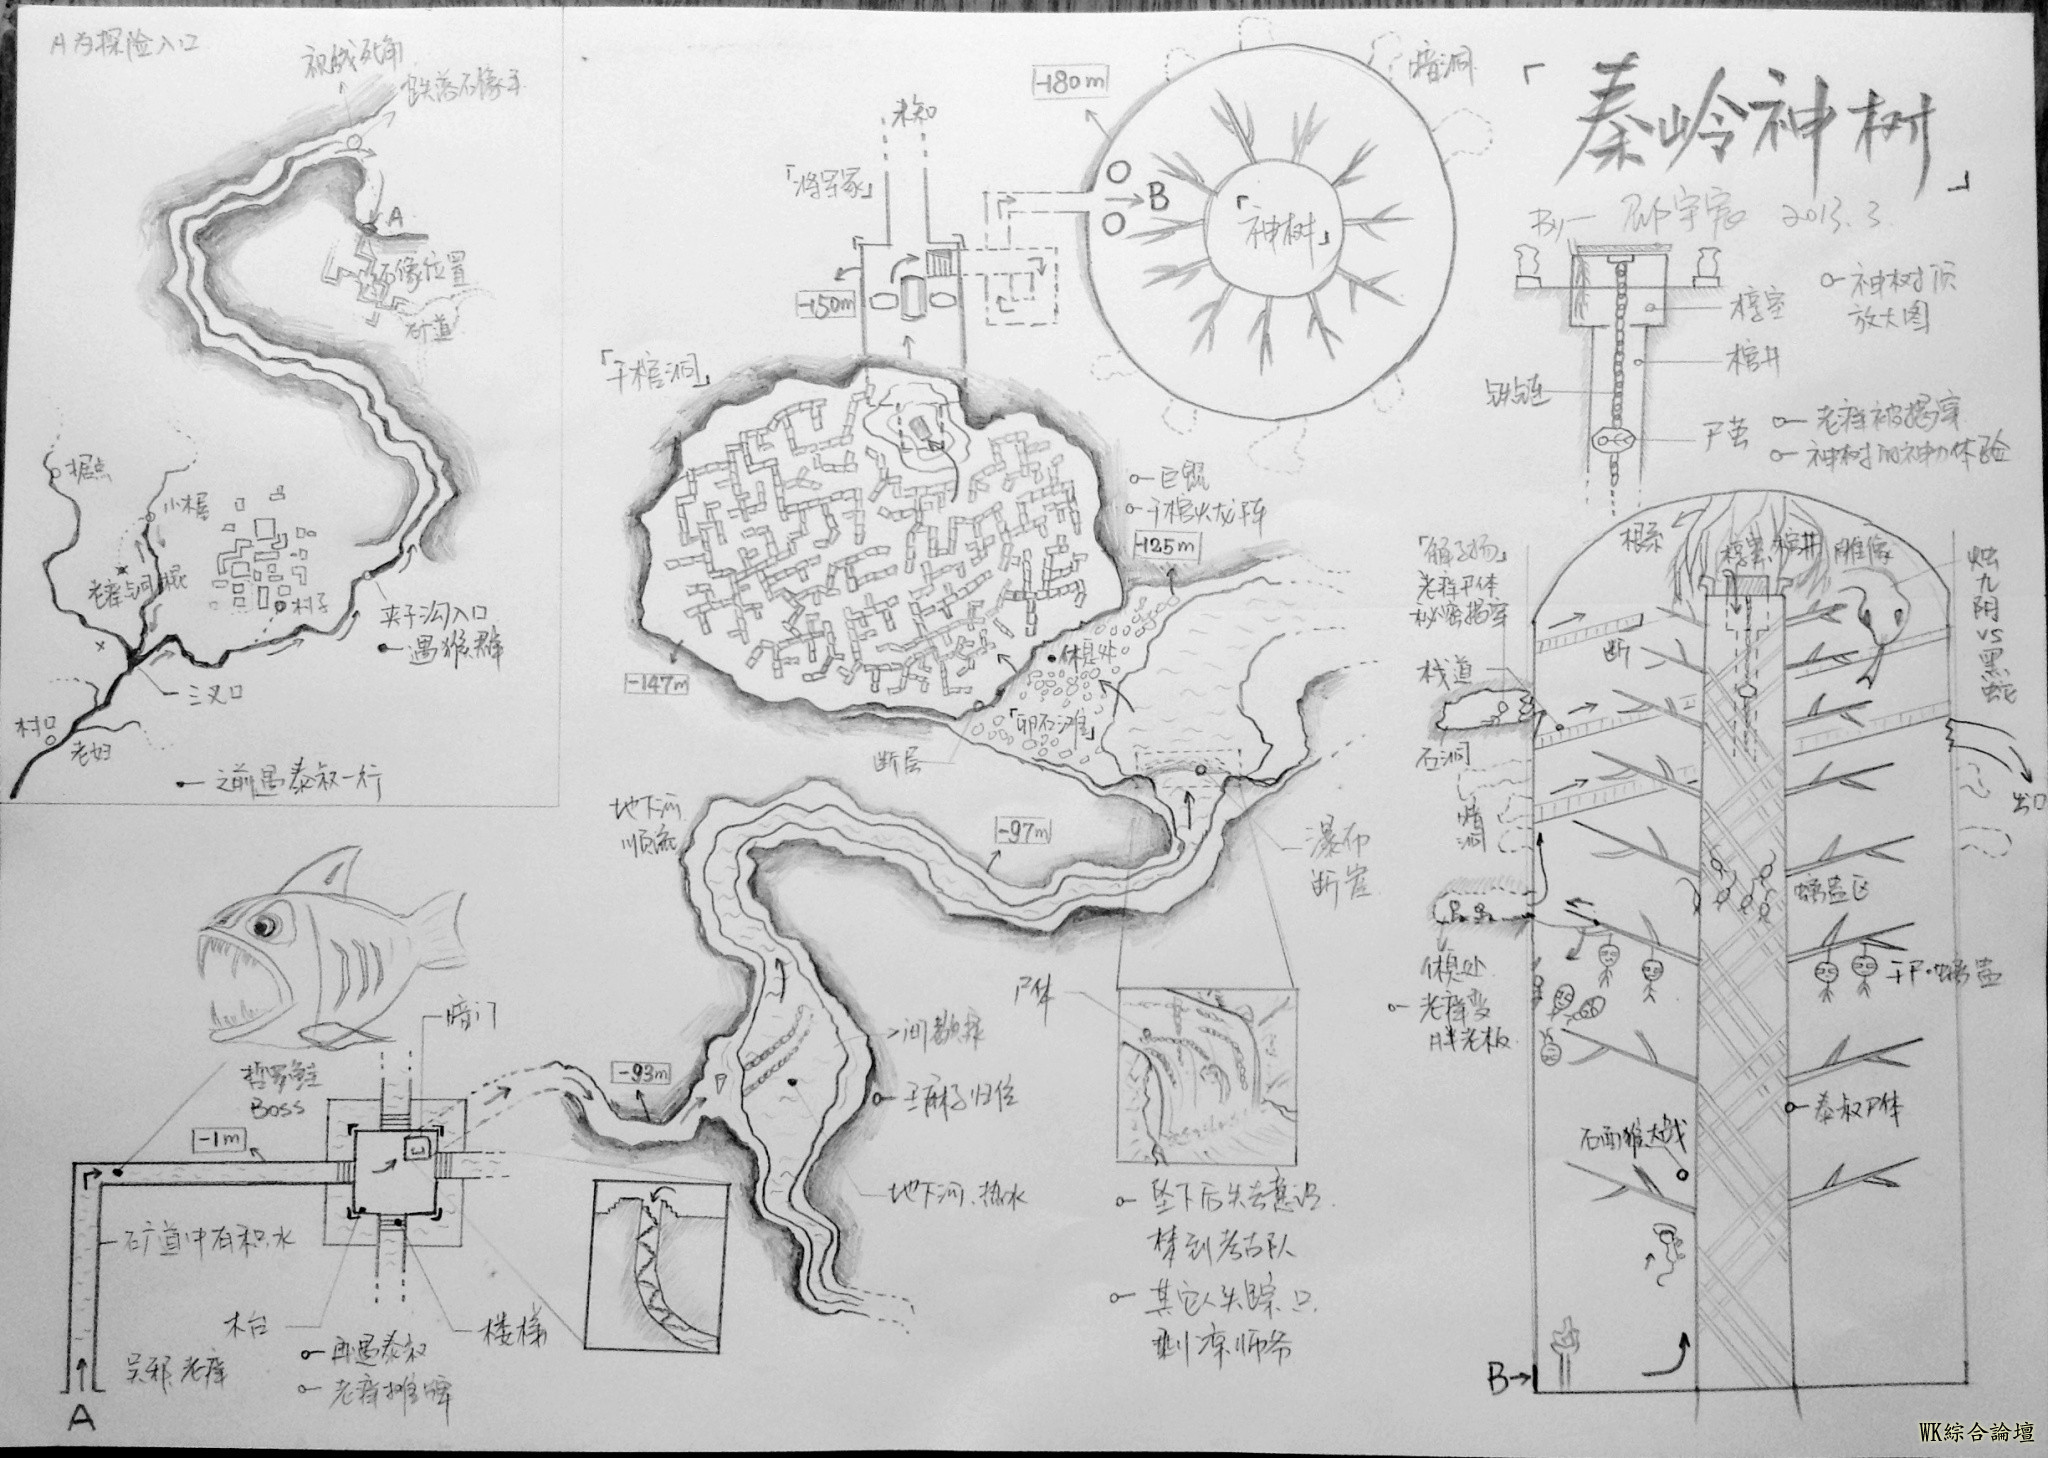 A为探险入口
视线死角
跌落石像手
A
石像位置
矿道
据点
小木屋
村子
夹子沟入口
遇猴群
三叉口
村口
老妇
之前遇泰叔一行
「秦岭神树」
By
2013.3.
神树顶
放大图
椁室
棺井
铁链
尸茧
老痒被揭穿
神树的神力体验
未知
「将军冢」
-150m
-180m
暗洞
B
「神树」
「千棺洞」
巨鲲
千棺火龙阵
-125m
-147m
休息处
「卵石滩」
断层
地下河
顺流
-97m
瀑布
断崖
尸体
-93m
王麻子归位
地下河、热水
坠下后失去意识
梦到考古队
其它人失踪只
剩凉师爷
哲罗鲑
Boss
暗门
-1m
矿道中有积水
木台
楼梯
吴邪、老痒
再遇泰叔
老痒摊牌
A
根系
椁室
棺井
雕像
烛九阴VS黑蛇
老痒尸体
秘密揭穿
断
栈道
石洞
暗洞
出口
螭蛊区
休息处
老痒变
胖老板
干尸·螭蛊
泰叔尸体
石面猴大战
B
WK綜合論壇